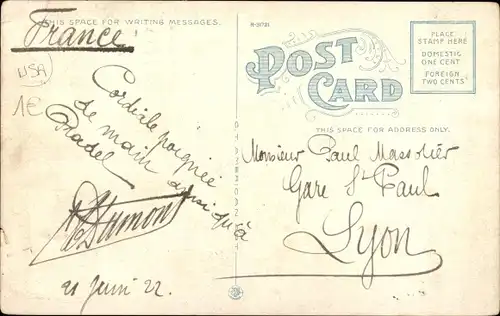 THIS SPACE FOR WRITING MESSAGES.
France
USA
1€
Cordiale poignée
de main ainsi qu'à
Pradel
Dumont
21 Juin 22.
R-35731
POST CARD
PLACE
STAMP HERE
DOMESTIC
ONE CENT
FOREIGN
TWO CENTS
THIS SPACE FOR ADDRESS ONLY.
Monsieur Paul
Gare St Paul
Lyon